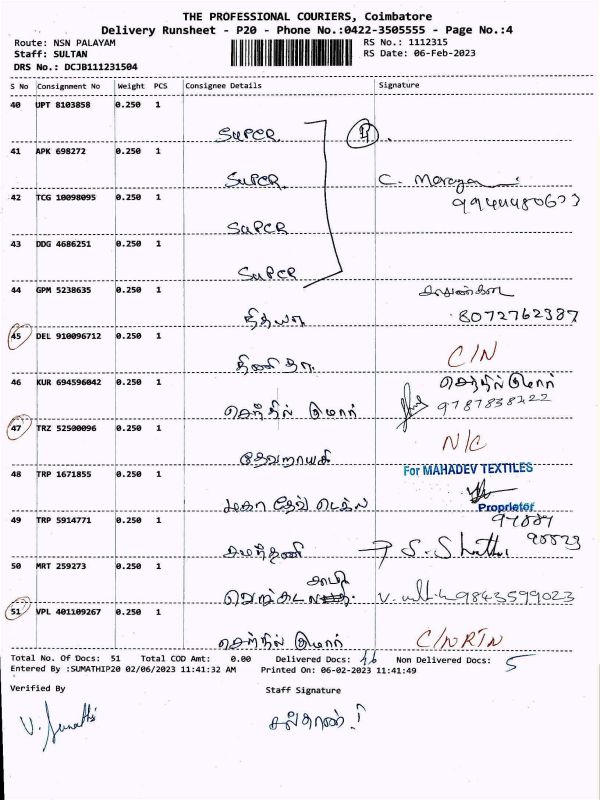 THE PROFESSIONAL COURIERS, Coimbatore
Delivery Runsheet - P20 - Phone No.:0422-3505555 - Page No.:4
Route: NSN PALAYAM RS No.: 1112315
Staff: SULTAN RS Date: 06-Feb-2023
DRS No.: DCJB111231504
S No Consignment No Weight PCS Consignee Details Signature
40 UPT 8103858 0.250 1
SUPER
41 APK 698272 0.250 1
SUPER C.
42 TCG 10098095 0.250 1
SUPER
43 DDG 4686251 0.250 1
SUPER
44 GPM 5238635 0.250 1
நித்யா 8072762387
45 DEL 910096712 0.250 1
C/N
46 KUR 694596042 0.250 1
செந்தில் குமார் செந்தில்குமார்
47 TRZ 52500096 0.250 1
N/C
48 TRP 1671855 0.250 1 For MAHADEV TEXTILES
மகா தேவ் Proprietor
49 TRP 5914771 0.250 1
50 MRT 259273 0.250 1
9843599023
51 VPL 401109267 0.250 1
செந்தில் குமார் C/N RTN
Total No. Of Docs: 51 Total COD Amt: 0.00 Delivered Docs: 46 Non Delivered Docs: 5
Entered By :SUMATHIP20 02/06/2023 11:41:32 AM Printed On: 06-02-2023 11:41:49
Verified By Staff Signature
V. Sumathi சுல்தான்